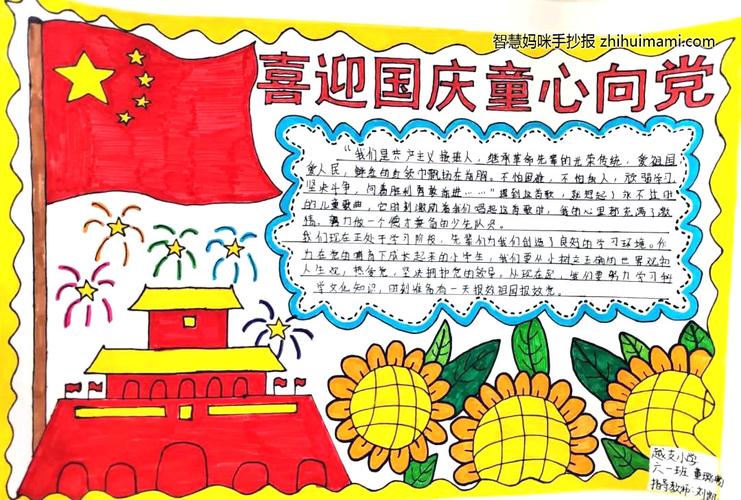 智慧妈咪手抄报 zhihuimami.com
喜迎国庆童心向党
“我们是共产主义接班人，继承革命先辈的光荣传统，爱祖国
爱人民，鲜艳的红领巾飘扬在前胸。不怕困难，不怕敌人，顽强学习
坚决斗争，向着胜利勇敢前进……”唱到这首歌，就想起了永不过时
的儿童歌曲，它时刻激励着我们唱起这首歌时，我的心里都充满了激
情。努力做一个德才兼备的少年队员。
我们现在正处于学习阶段，先辈们为我们创造了良好的学习环境。作
为在党的哺育下成长起来的小学生，我们要从小树立正确的世界观和
人生观，热爱党，坚决拥护党的领导，从现在起，我们要努力学习科
学文化知识，时刻准备有一天报效祖国报效党。
越支小学
六一班
指导教师:刘